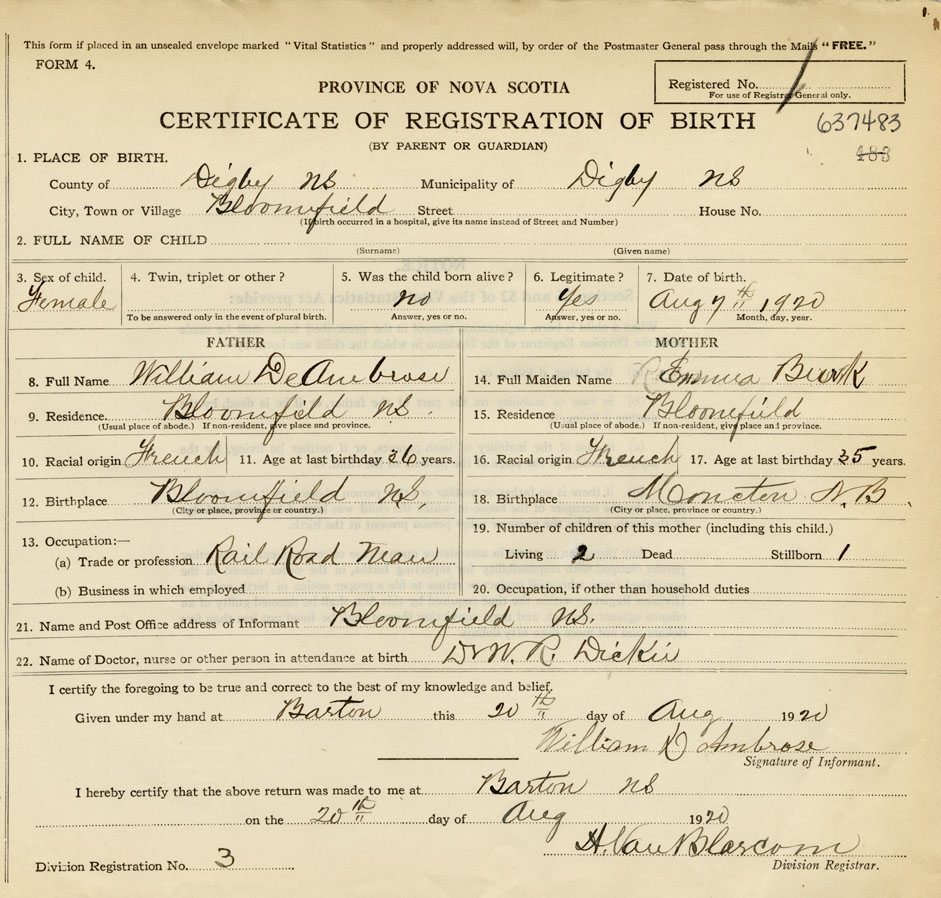 This form if placed in an unsealed envelope marked "Vital Statistics" and properly addressed will, by order of the Postmaster General pass through the Mails "FREE."
FORM 4.
PROVINCE OF NOVA SCOTIA
Registered No. 1
For use of Registrar General only.
CERTIFICATE OF REGISTRATION OF BIRTH
637483
(BY PARENT OR GUARDIAN)
183
1. PLACE OF BIRTH.
County of Digby NS Municipality of Digby NS
City, Town or Village Bloomfield Street House No.
(If birth occurred in a hospital, give its name instead of Street and Number)
2. FULL NAME OF CHILD
(Surname) (Given name)
3. Sex of child. 4. Twin, triplet or other? 5. Was the child born alive? 6. Legitimate? 7. Date of birth.
Female no Yes Aug 7th 1920
To be answered only in the event of plural birth. Answer, yes or no. Answer, yes or no. Month, day, year.
FATHER MOTHER
8. Full Name William DeAmbrose 14. Full Maiden Name Emma Burk
9. Residence Bloomfield NS. 15. Residence Bloomfield
(Usual place of abode.) If non-resident, give place and province. (Usual place of abode.) If non-resident, give place and province.
10. Racial origin French 11. Age at last birthday 36 years. 16. Racial origin French 17. Age at last birthday 35 years.
12. Birthplace Bloomfield NS. 18. Birthplace Moncton N.B
(City or place, province or country.) (City or place, province or country.)
19. Number of children of this mother (including this child.)
13. Occupation:—
(a) Trade or profession Rail Road Man Living 2 Dead Stillborn 1
(b) Business in which employed 20. Occupation, if other than household duties
21. Name and Post Office address of Informant Bloomfield NS.
22. Name of Doctor, nurse or other person in attendance at birth Dr W. R. Dickie
I certify the foregoing to be true and correct to the best of my knowledge and belief.
Given under my hand at Barton this 20th day of Aug 1920
William D Ambrose
Signature of Informant.
I hereby certify that the above return was made to me at Barton NS
on the 20th day of Aug 1920
H Van Blarcom
Division Registration No. 3 Division Registrar.